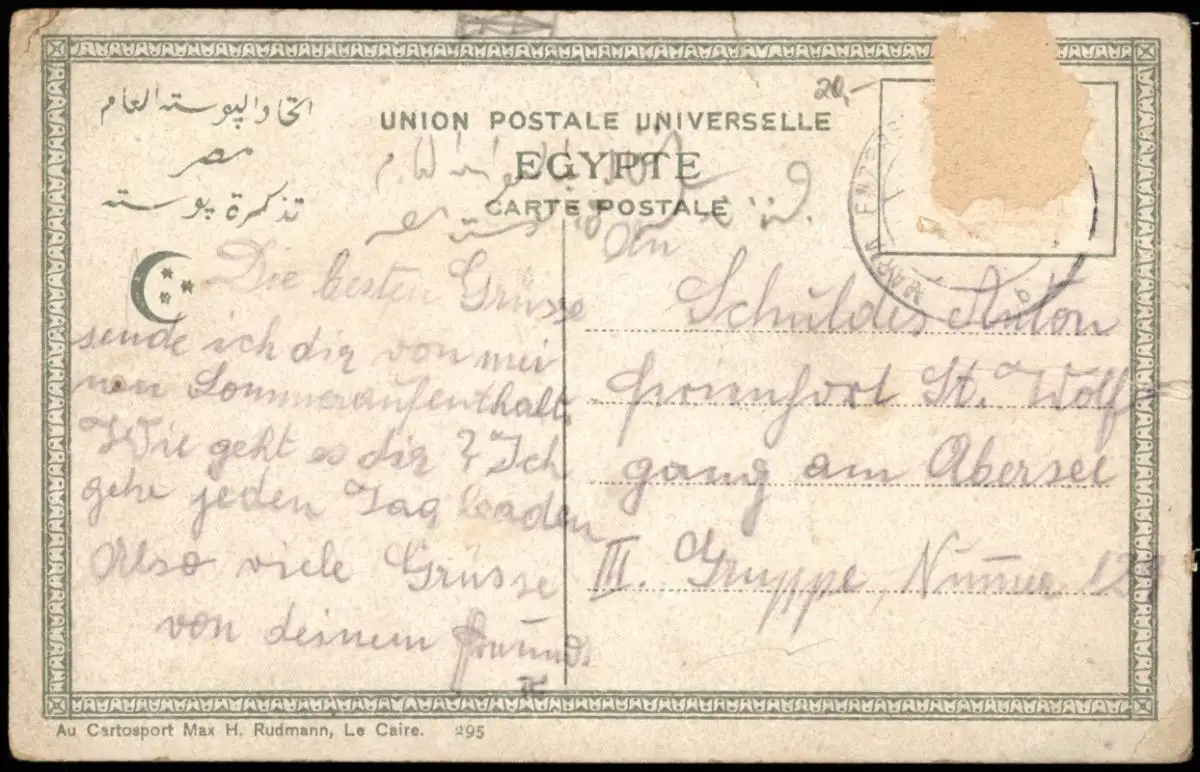 اتحاد البوسته العام
مصر
تذكرة بوسته
UNION POSTALE UNIVERSELLE
EGYPTE
CARTE POSTALE
20,-
MARIA ENZERS
Die besten Grüsse
sende ich dir von mei
nen Sommeraufenthalt.
Wie geht es dir? Ich
gehe jeden Tag baden
Also viele Grüsse
von deinem Freund.
An
Schuldes Anton
Ferienhort St. Wolf
gang am Abersee
III. Gruppe, Nummer 12
Au Cartosport Max H. Rudmann, Le Caire. 295